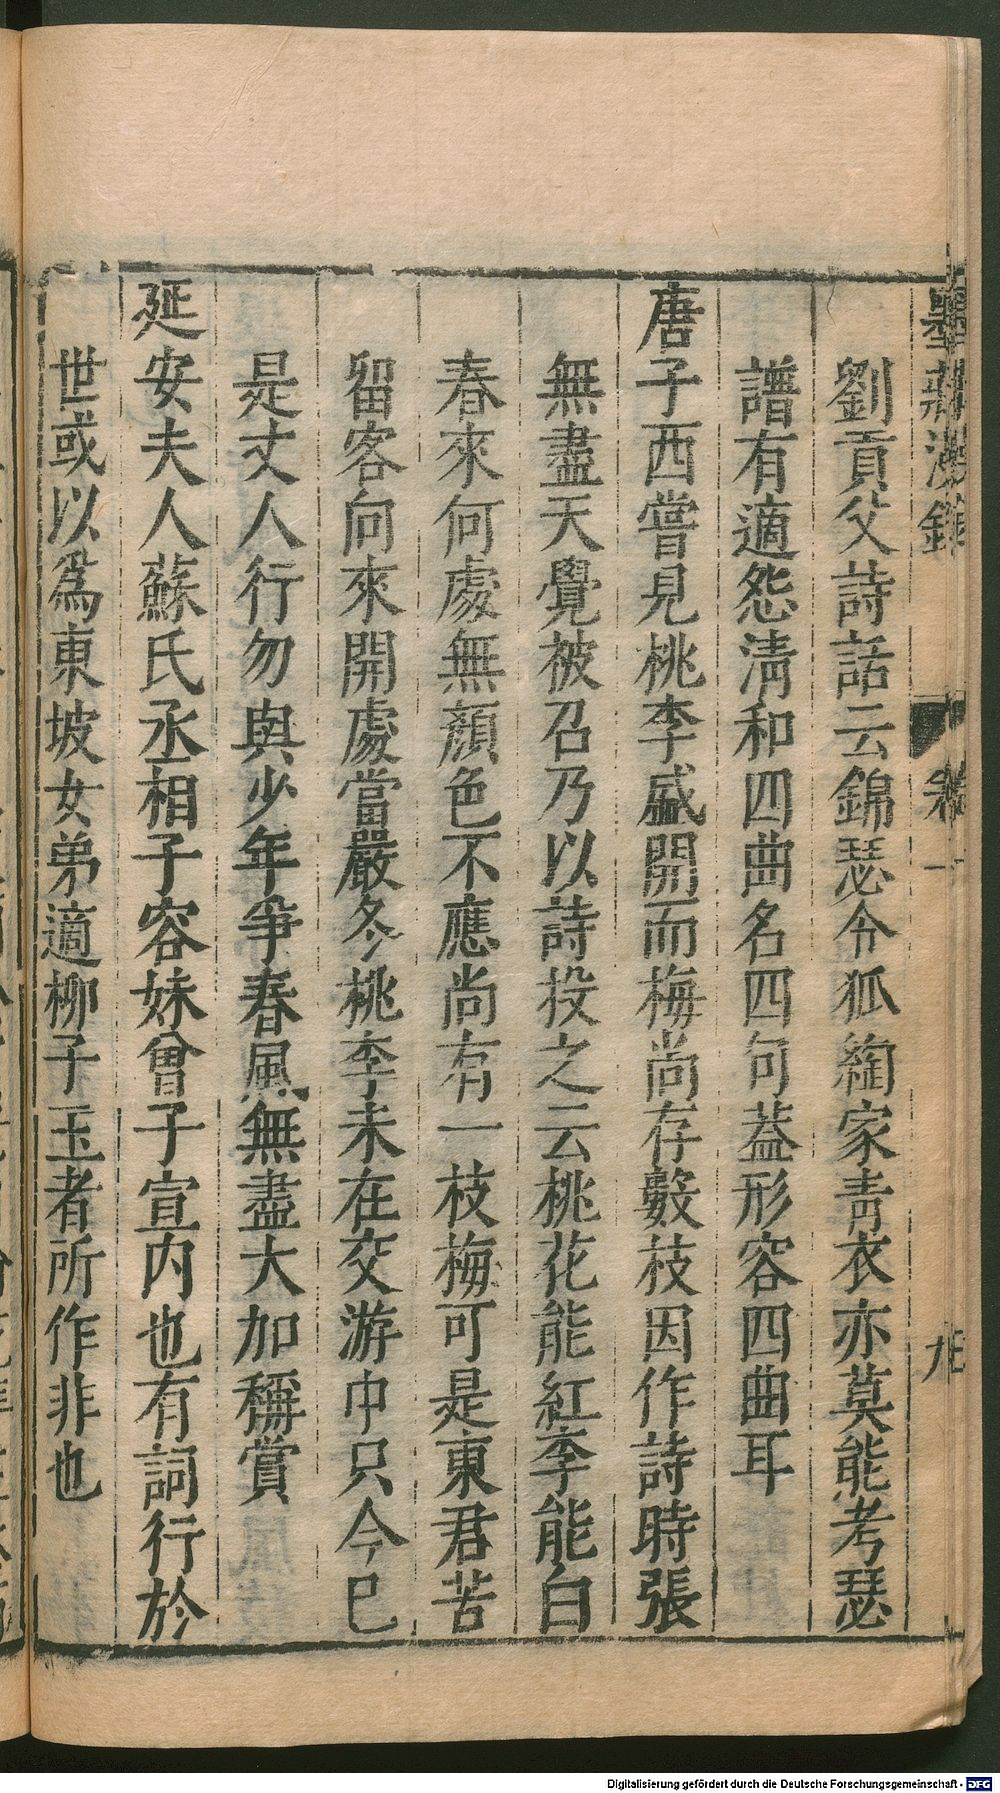 墨莊漫錄 卷一 九
劉貢父詩話云錦瑟令狐綯家青衣亦莫能考瑟
譜有適怨淸和四曲名四句葢形容四曲耳
唐子西嘗見桃李盛開而梅尚存數枝因作詩時張
無盡天覺被召乃以詩投之云桃花能紅李能白
春來何處無顏色不應尚有一枝梅可是東君苦
留客向來開處當嚴冬桃李未在交游中只今已
是丈人行勿與少年爭春風無盡大加稱賞
延安夫人蘇氏丞相子容妹曾子宣内也有詞行於
世或以爲東坡女弟適柳子玉者所作非也
Digitalisierung gefördert durch die Deutsche Forschungsgemeinschaft - DFG